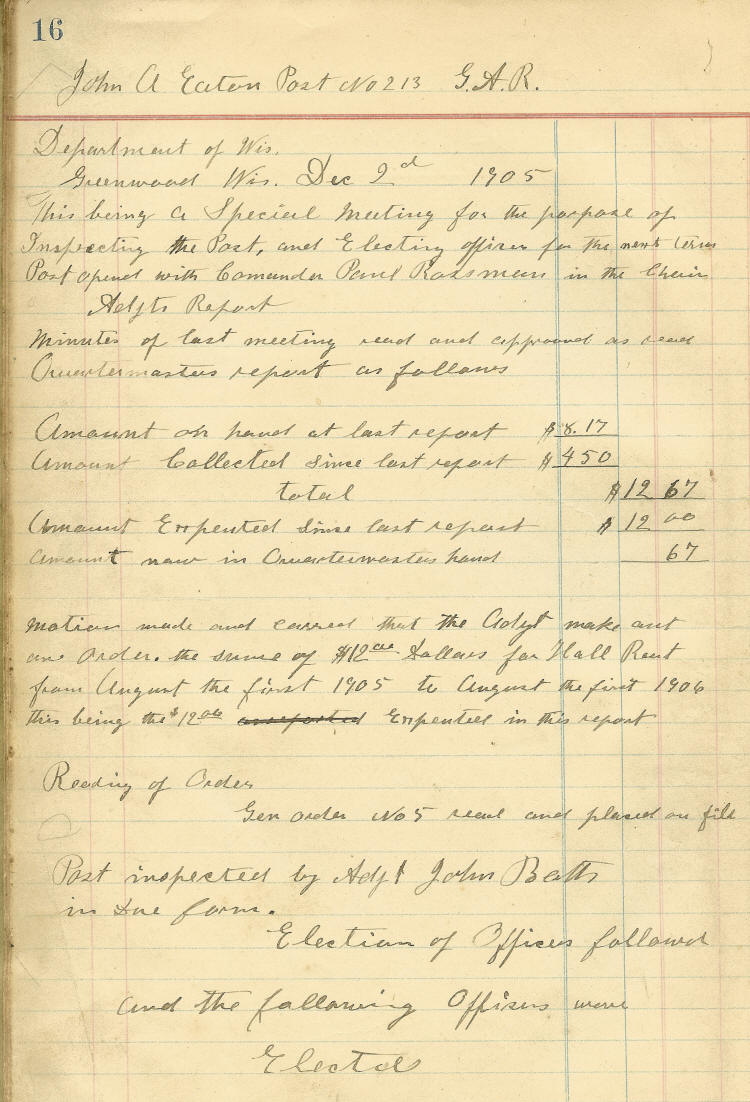 16
John A Eaton Post No 213 G.A.R.
Department of Wis.
Greenwood Wis. Dec 2d 1905
This being a Special Meeting for the purpose of
Inspecting the Post, and Electing officers for the next term
Post opend with Comander Paul Rossman in the Chair
Adjts Report
Minutes of last meeting read and approved as read
Quartermasters report as follows
Amount on hand at last report $8.17
Amount Collected since last report $450
total $12 67
Amount Expented since last report $ 12 00
Amount now in Quartermasters hand 67
Motion made and carred that the Adjt make out
an Order. the sume of $12 00 Dollars for Hall Rent
from August the first 1905 to August the first 1906
this being the $12 00 as reported Expented in this report
Reading of Order
Gen order No 5 read and placed on file
Post inspected by Adjt John Batts
in due form.
Election of Offices followed
and the following Officers were
Elected